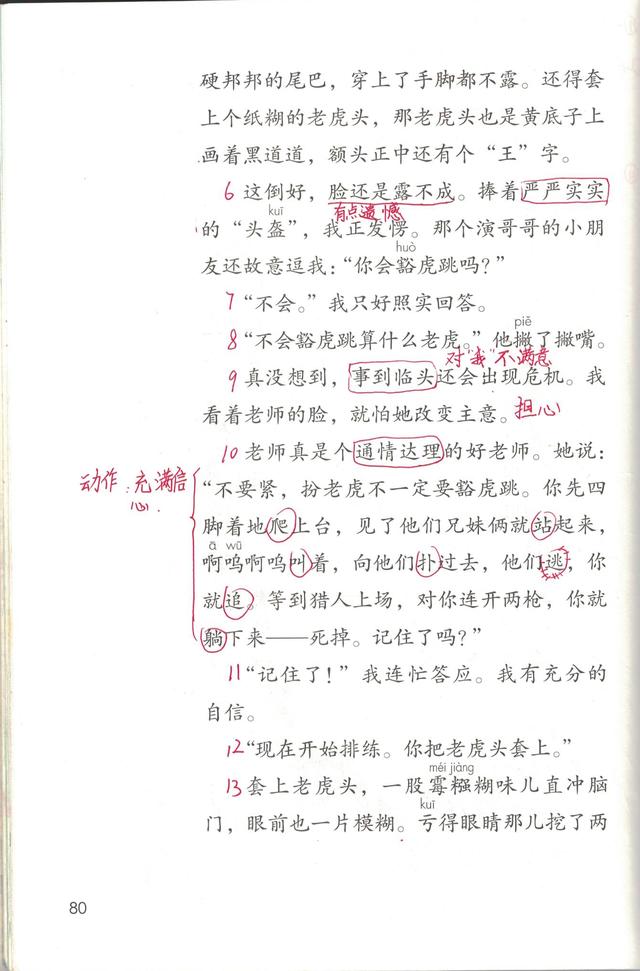 硬邦邦的尾巴，穿上了手脚都不露。还得套
上个纸糊的老虎头，那老虎头也是黄底子上
画着黑道道，额头正中还有个“王”字。
6 这倒好，脸还是露不成。捧着严严实实
kuī
有点遗憾
的“头盔”，我正发愣。那个演哥哥的小朋
huò
友还故意逗我：“你会豁虎跳吗？”
7 “不会。”我只好照实回答。
piě
8 “不会豁虎跳算什么老虎。”他撇了撇嘴。
对“我”不满意
9 真没想到，事到临头还会出现危机。我
看着老师的脸，就怕她改变主意。 担心
10 老师真是个通情达理的好老师。她说：
动作：充满信
心.
“不要紧，扮老虎不一定要豁虎跳。你先四
脚着地爬上台，见了他们兄妹俩就站起来，
ā wū
啊呜啊呜叫着，向他们扑过去，他们逃，你
就追。等到猎人上场，对你连开两枪，你就
躺下来——死掉。记住了吗？”
11 “记住了！”我连忙答应。我有充分的
自信。
12 “现在开始排练。你把老虎头套上。”
méi jiàng
13 套上老虎头，一股霉糨糊味儿直冲脑
kuī
门，眼前也一片模糊。亏得眼睛那儿挖了两
80